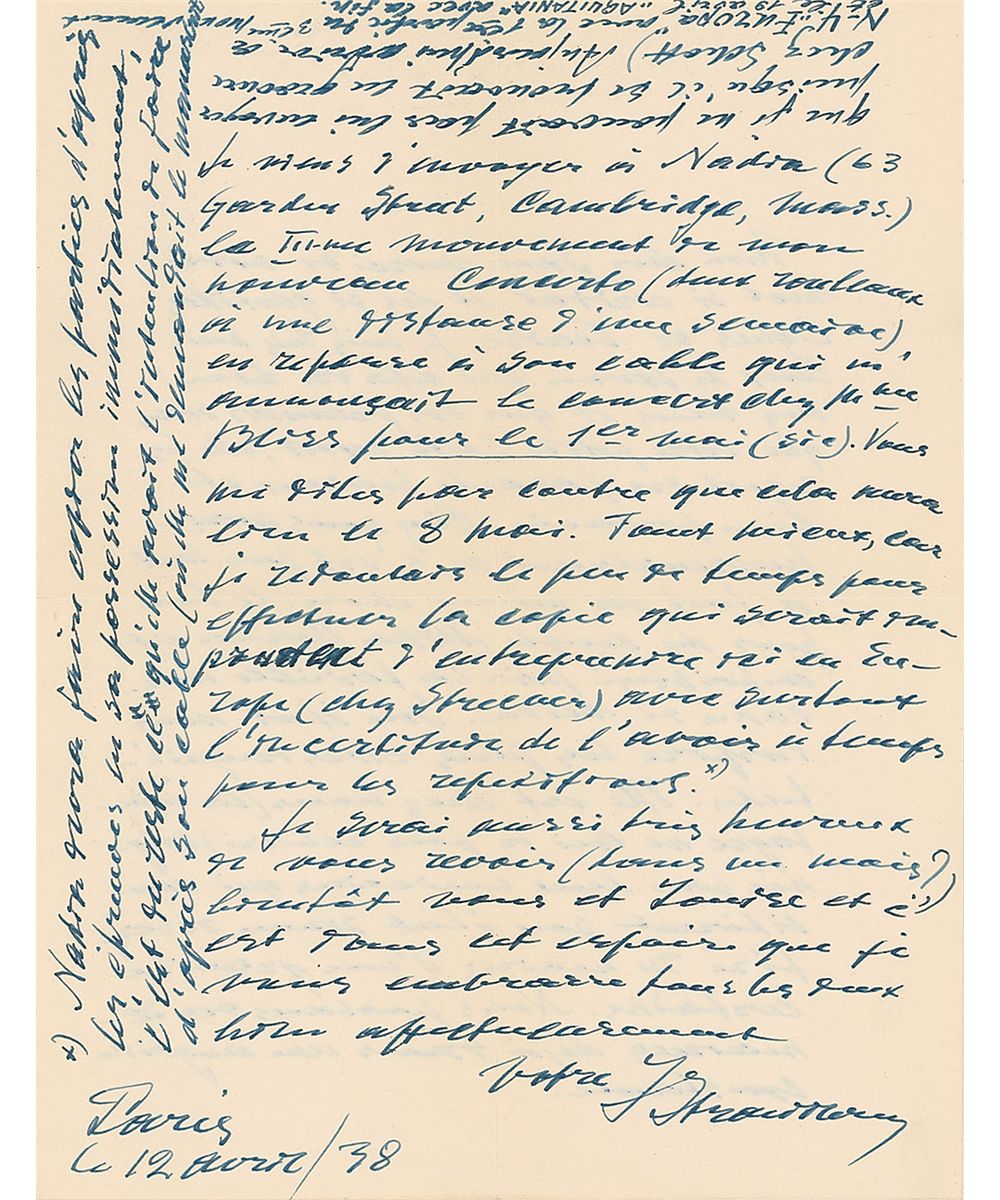 Je viens d'envoyer à Nadia (63
Garden Street, Cambridge, Mass.)
la III-me mouvement de mon
nouveau Concerto (deux rouleaux
à une distance d'une semaine)
en reponse à son cable qui m'
annonçait le concert chez Mme
Bliss pour le 1er mai (sic). Vous
me dites par contre que cela aura
lieu le 8 mai. Tant mieux, car
je redoutais le peu de temps pour
effectuer la copie qui serait im-
prudent d'entreprendre ici en Eu-
rope (chez Strecker) avec surtout
l'incertitude de l'avoir à temps
pour les repetitions.x)
Je serai aussi très heureux
de vous revoir (dans un mois?)
bientôt vous et Louise et c'
est dans cet espoire que je
vous embrasse tous les deux
bien affectueusement
Votre IStrawinsky
Paris
le 12 avril/38
x) Nadia devra faire copier les parties d'après
les épreuves en sa possession immédiatement.
C'est du reste ce qui avait l'intention de faire
d'après son cable (où elle me demandait le manuscrit
que je ne pouvait pas lui envoyer
puisqu'il se trouvait en gravure
chez Schott) Aujourd'hui arrive a
N-Y. "Europa" avec la 1re partie du 3eme mouvement
et le 19 avril "AQUITANIA" avec la fin.